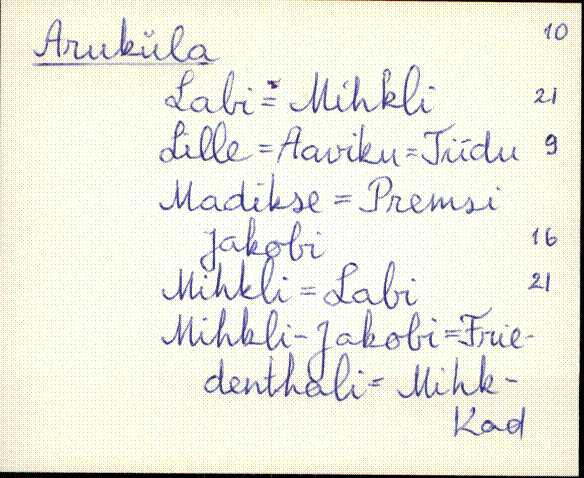 Aruküla 10
Labi = Mihkli 21
Lille = Aaviku = Tiidu 9
Madikse = Premsi
Jakobi 16
Mihkli = Labi 21
Mihkli-Jakobi = Frie-
denthali = Mihk-
Kad